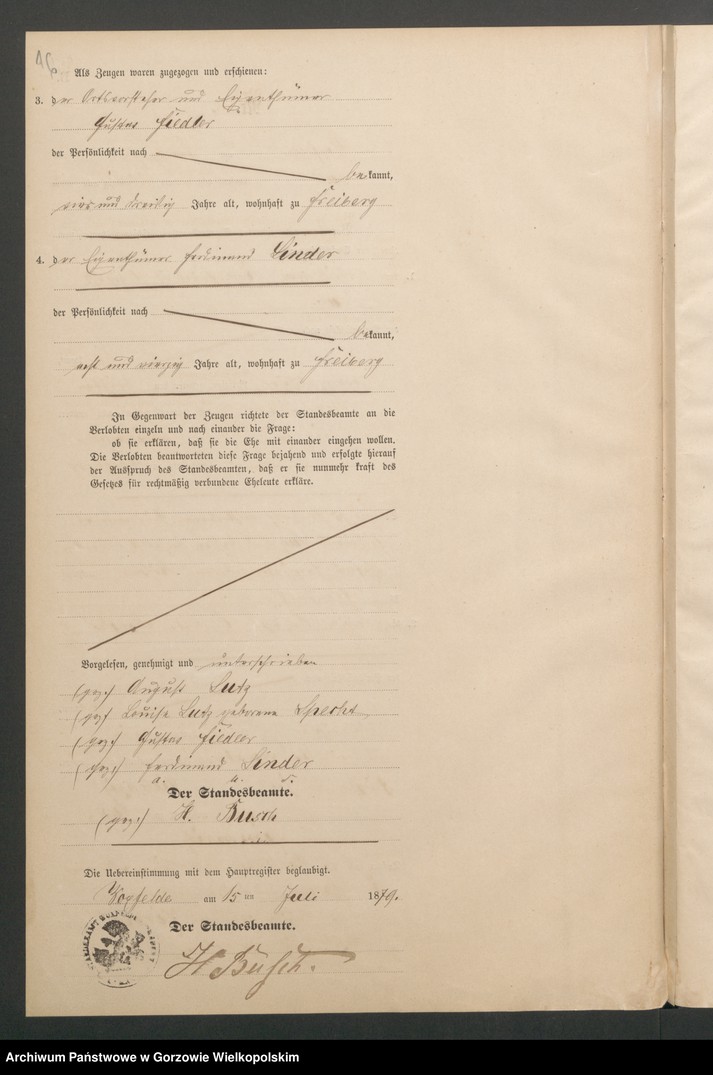 Als Zeugen waren zugezogen und erschienen:
3. der Ortsvorsteher und Eigenthümer
Gustav Fiedler
der Persönlichkeit nach
bekannt,
vier und dreißig Jahre alt, wohnhaft zu Freiberg
4. der Eigenthümer Ferdinand Linder
der Persönlichkeit nach
bekannt,
acht und vierzig Jahre alt, wohnhaft zu Freiberg
In Gegenwart der Zeugen richtete der Standesbeamte an die
Verlobten einzeln und nach einander die Frage:
ob sie erklären, daß sie die Ehe mit einander eingehen wollen.
Die Verlobten beantworteten diese Frage bejahend und erfolgte hierauf
der Ausspruch des Standesbeamten, daß er sie nunmehr kraft des
Gesetzes für rechtmäßig verbundene Eheleute erkläre.
Vorgelesen, genehmigt und unterschrieben
(gez.) August Lutz
(gez.) Louise Lutz geborene Specht
(gez.) Gustav Fiedler
(gez.) Ferdinand Linder
a. u. s.
Der Standesbeamte.
(gez.) H. Busch
Die Uebereinstimmung mit dem Hauptregister beglaubigt.
am 15 ten Juli 1879.
Der Standesbeamte.
H Busch.
Archiwum Państwowe w Gorzowie Wielkopolskim